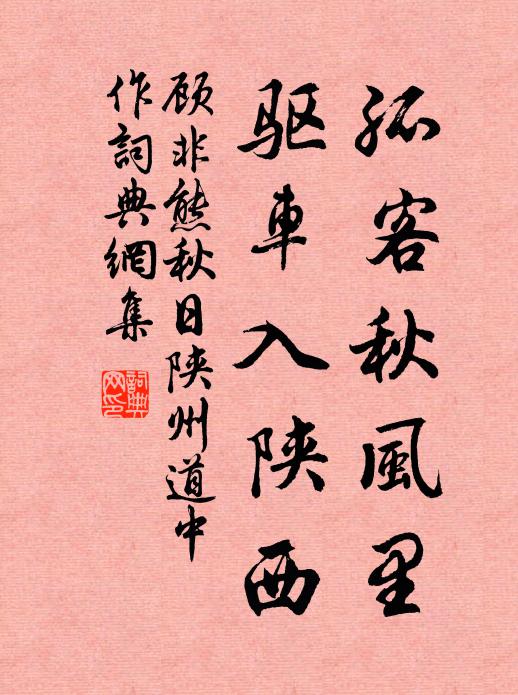 孤客秋風里
驱車入陕西
顾非熊秋日陕州道中
作詞典網集
詞典
网印